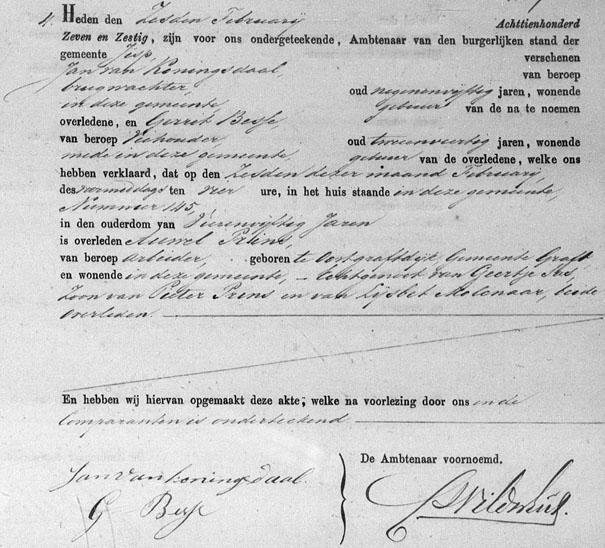 4. Heden den Zesden Februarij Achttienhonderd
Zeven en Zestig, zijn voor ons ondergeteekende, Ambtenaar van den burgerlijken stand der
gemeente Jisp, verschenen
Jan van Koningsdaal van beroep
brugwachter, oud negenenvijftig jaren, wonende
in deze gemeente, gebuur van de na te noemen
overledene, en Gerret Besse
van beroep Veehouder, oud tweenveertig jaren, wonende
mede in deze gemeente, gebuur van de overledene, welke ons
hebben verklaard, dat op den Zesden dezer maand Februarij,
des voormiddags ten vier ure, in het huis staande in deze gemeente,
Nummer 145,
in den ouderdom van Vierenvijftig Jaren
is overleden Prins,
van beroep arbeider, geboren te Oostgraftdijk Gemeente Graft
en wonende in deze gemeente, echtgenoot van Geertje
Zoon van Pieter Prins en van Lijsbet Molenaar, beide
overleden.
En hebben wij hiervan opgemaakt deze akte, welke na voorlezing door ons en de
Comparanten is onderteekend
De Ambtenaar voornoemd.
Jan van koningsdaal.
G Besse